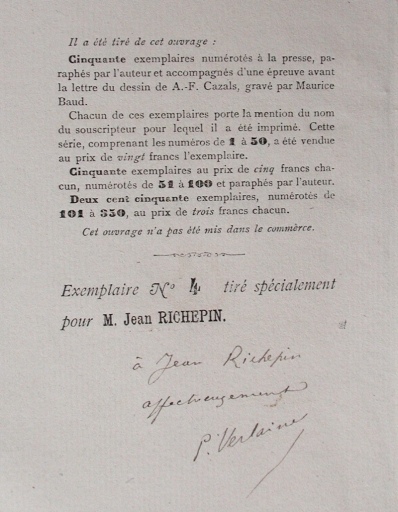 Il a été tiré de cet ouvrage :
Cinquante exemplaires numérotés à la presse, pa-
raphés par l'auteur et accompagnés d'une épreuve avant
la lettre du dessin de A.-F. Cazals, gravé par Maurice
Baud.
Chacun de ces exemplaires porte la mention du nom
du souscripteur pour lequel il a été imprimé. Cette
série, comprenant les numéros de 1 à 50, a été vendue
au prix de vingt francs l'exemplaire.
Cinquante exemplaires au prix de cinq francs cha-
cun, numérotés de 51 à 100 et paraphés par l'auteur.
Deux cent cinquante exemplaires, numérotés de
101 à 350, au prix de trois francs chacun.
Cet ouvrage n'a pas été mis dans le commerce.
Exemplaire No 4 tiré spécialement
pour M. Jean RICHEPIN.
à Jean Richepin
affectueusement
P. Verlaine